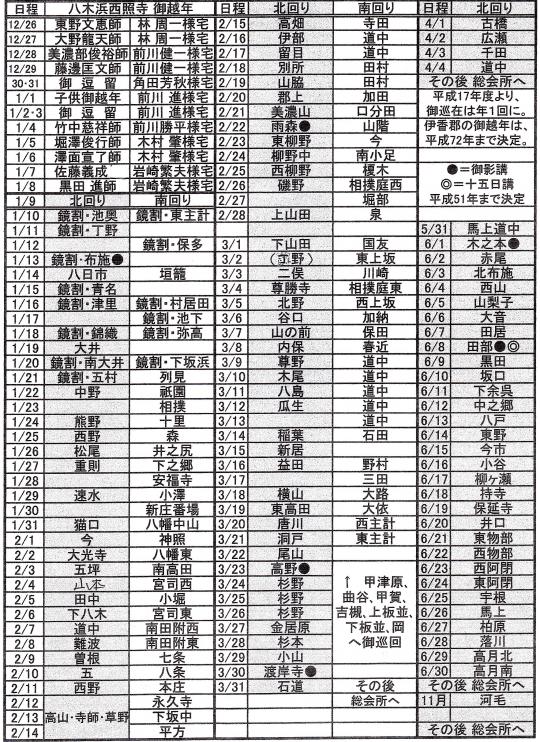 日程 八木浜西照寺 御越年
12/26 東野文恵師 林 周一様宅
12/27 大野龍天師 林 周一様宅
12/28 美濃部俊裕師 前川健一様宅
12/29 藤邊匡文師 前川健一様宅
30・31 御 逗 留 角田芳秋様宅
1/1 子供御越年 前川 進様宅
1/2・3 御 逗 留 前川 進様宅
1/4 竹中慈祥師 前川勝平様宅
1/5 堀澤俊行師 木村 肇様宅
1/6 澤面宣了師 木村 肇様宅
1/7 佐藤義成 岩崎繁夫様宅
1/8 黒田 進師 岩崎繁夫様宅
1/9 北回り 南回り
1/10 鏡割・池奥 鏡割・東主計
1/11 鏡割・丁野
1/12 鏡割・保多
1/13 鏡割・布施●
1/14 八日市 垣籠
1/15 鏡割・青名
1/16 鏡割・津里 鏡割・村居田
1/17 鏡割・池下
1/18 鏡割・錦織 鏡割・弥高
1/19 大井
1/20 鏡割・南大井 鏡割・下坂浜
1/21 鏡割・五村 列見
1/22 中野 祇園
1/23 相撲
1/24 熊野 十里
1/25 西野 森
1/26 松尾 井之尻
1/27 重則 下之郷
1/28 安福寺
1/29 速水 小澤
1/30 新庄番場
1/31 猫口 八幡中山
2/1 今 神照
2/2 大光寺 八幡東
2/3 五坪 南高田
2/4 山本 宮司西
2/5 田中 小堀
2/6 下八木 宮司東
2/7 道中 南田附西
2/8 難波 南田附東
2/9 曽根 七条
2/10 五 八条
2/11 西野 本庄
2/12 永久寺
2/13 高山・寺師・草野 下坂中
2/14 平方
日程 北回り 南回り
2/15 高畑 寺田
2/16 伊部 道中
2/17 留目 道中
2/18 別所 田村
2/19 山脇 田村
2/20 郡上 加田
2/21 美濃山 口分田
2/22 雨森● 山階
2/23 東柳野 今
2/24 柳野中 南小足
2/25 西柳野 榎木
2/26 磯野 相撲庭西
2/27 堀部
2/28 上山田 泉
3/1 下山田 国友
3/2 (京野) 東上坂
3/3 二俣 川崎
3/4 尊勝寺 相撲庭東
3/5 北野 西上坂
3/6 谷口 加納
3/7 山の前 保田
3/8 内保 春近
3/9 尊野 道中
3/10 木尾 道中
3/11 八島 道中
3/12 瓜生 道中
3/13 道中
3/14 稲葉 石田
3/15 新居
3/16 益田 野村
3/17 三田
3/18 横山 大路
3/19 東高田 大依
3/20 唐川 西主計
3/21 洞戸 東主計
3/22 尾山
3/23 高野●
3/24 杉野
3/25 杉野
3/26 杉野
3/27 金居原
3/28 杉本
3/29 小山
3/30 渡岸寺●
3/31 石道 その後
総会所へ
↑ 甲津原、
曲谷、甲賀、
吉槻、上板並、
下板並、岡
へ御巡回
日程 北回り
4/1 古橋
4/2 広瀬
4/3 千田
4/4 道中
その後 総会所へ
平成17年度より、
御巡在は年1回に。
伊香郡の御越年は、
平成72年まで決定。
●=御影講
◎=十五日講
平成51年まで決定
5/31 馬上道中
6/1 木之本●
6/2 赤尾
6/3 北布施
6/4 西山
6/5 山梨子
6/6 大音
6/7 田居
6/8 田部●◎
6/9 黒田
6/10 坂口
6/11 下余呉
6/12 中之郷
6/13 八戸
6/14 東野
6/15 今市
6/16 小谷
6/17 柳ヶ瀬
6/18 持寺
6/19 保延寺
6/20 井口
6/21 東物部
6/22 西物部
6/23 西阿閉
6/24 東阿閉
6/25 宇根
6/26 馬上
6/27 柏原
6/28 落川
6/29 高月北
6/30 高月南
その後 総会所へ
11月 河毛
その後 総会所へ